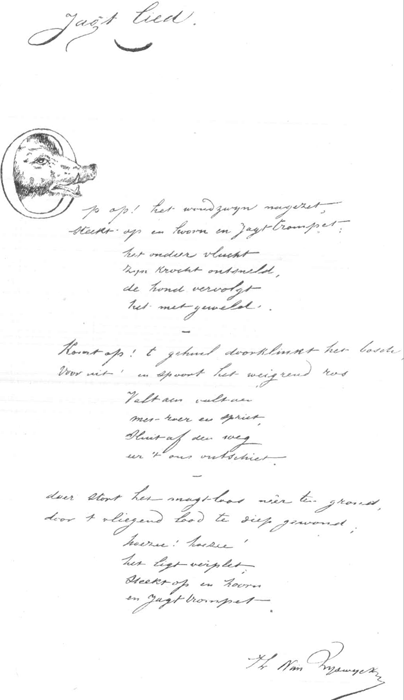 Jagt lied.
Op op! het woudzwyn nagezet,
Steekt op en hoorn en Jagt trompet;
het ondier vlucht
Zyn krocht ontsneld,
de hond vervolgt
het met geweld.
–
Komt op! t gehuil doorklinkt het bosch,
Voor uit! en spoort het weigrend ros
Valt aen valt aen
met roer en spriet,
Sluit af den weg
eer 't ons ontschiet.
–
daer stort het magtloos nêer ten grond,
door t vliegend lood te diep gewond;
hoezee! hoezee!
het ligt verplet,
Steekt op en hoorn
en Jagt trompet.
Th Van Ryswyck